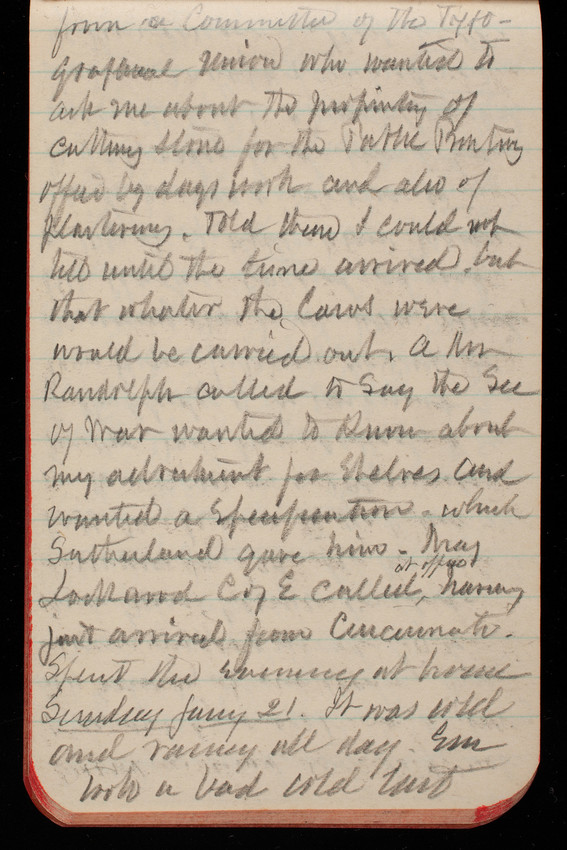 from a Committee of the Typo-
Graphical Union who wanted to
ask me about the propriety of
cutting stone for the Public Printing
office by days work and also of
plastering. Told them I could not
tell until the time arrived, but
that whatever the Laws were
would be carried out. A Mr
Randolph called to Say the Sec
of War wanted to Know about
my advertisement for Shelves and
wanted a Specification - which
Sutherland gave him - Maj
at office
Lockwood C of E called, having
just arrived from Cincinnati.
Spent the evening at home
Sunday Jany 21. It was cold
and rainy all day. Em
took a bad cold last